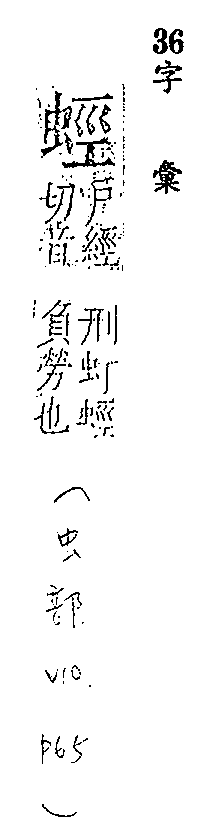 36字彙
蛵
戶經
切音
刑虰蛵
負勞也
(虫部 V10. P65)